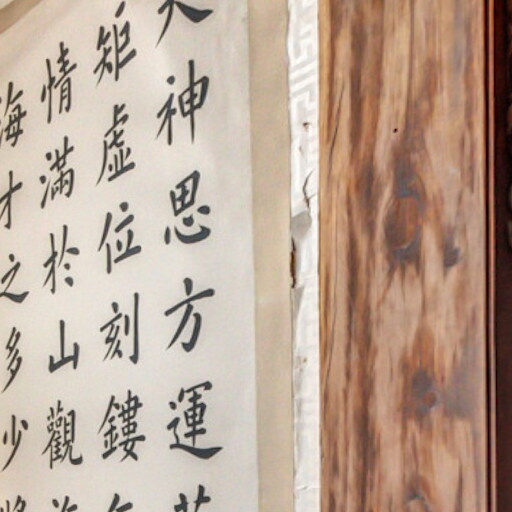 神思方運
矩虛位刻鏤
情滿於山觀
海才之多少